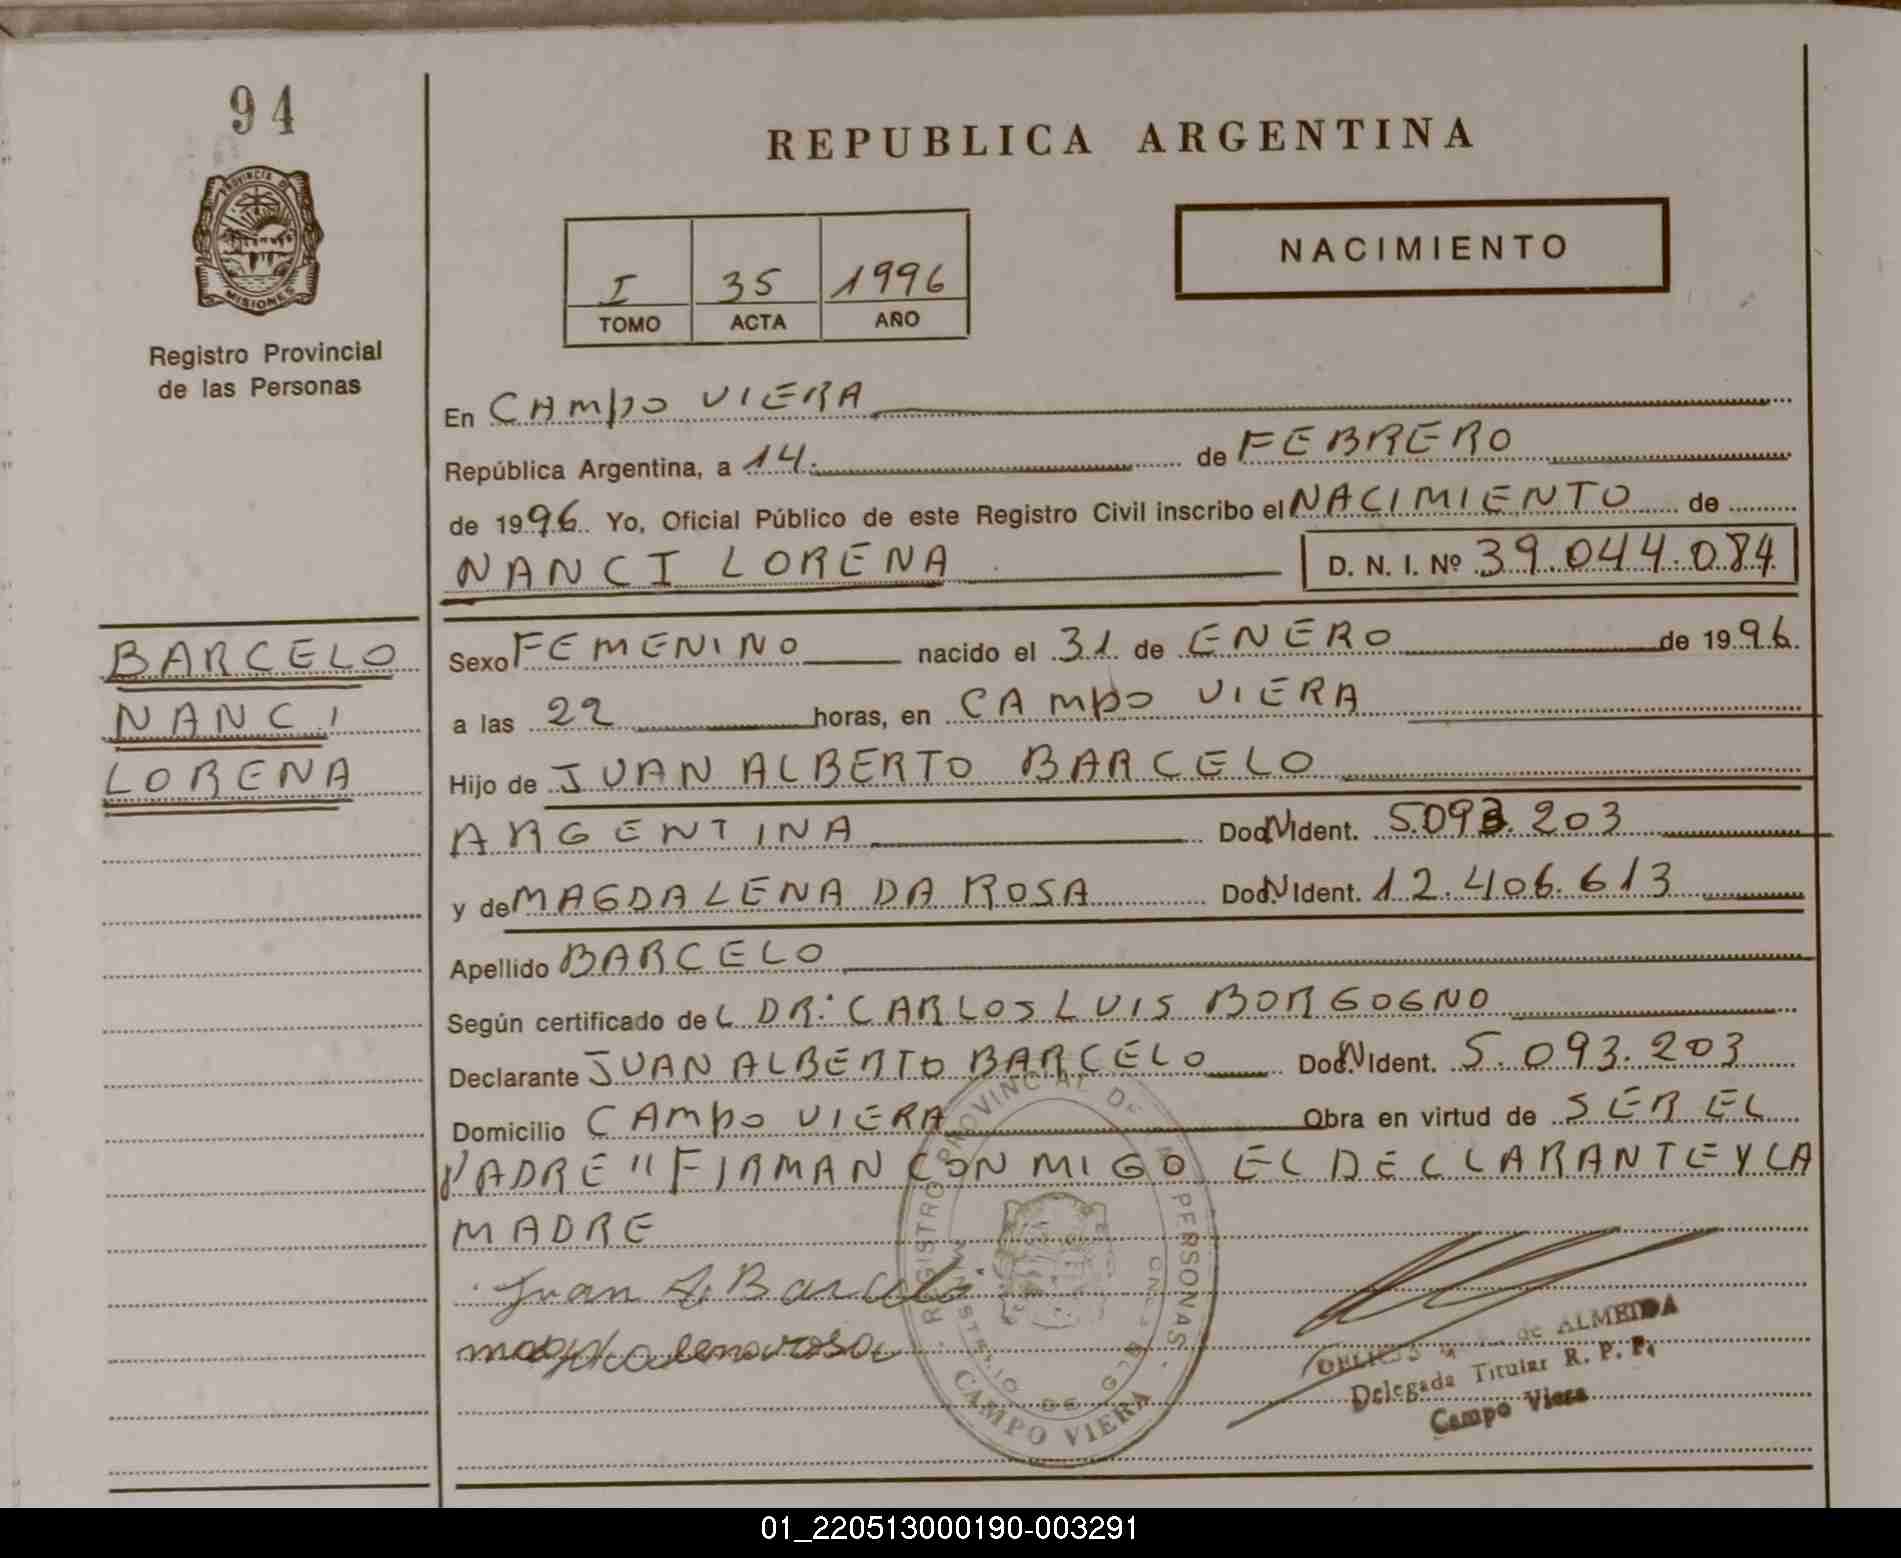 94
REPUBLICA ARGENTINA
PROVINCIA DE
MISIONES
Registro Provincial
de las Personas
NACIMIENTO
I 35 1996
TOMO ACTA AÑO
En CAMPO VIERA
República Argentina, a 14. de FEBRERO
de 1996. Yo, Oficial Público de este Registro Civil inscribo el NACIMIENTO de
NANCI LORENA D. N. I. Nº 39.044.084
BARCELO
NANCI
LORENA
Sexo FEMENINO nacido el 31 de ENERO de 1996.
a las 22 horas, en CAMPO VIERA
Hijo de JUAN ALBERTO BARCELO
ARGENTINA Doc. N Ident. 5.093.203
y de MAGDALENA DA ROSA Doc. N Ident. 12.406.613
Apellido BARCELO
Según certificado de L DR. CARLOS LUIS BORGOGNO
Declarante JUAN ALBERTO BARCELO Doc. N Ident. 5.093.203
Domicilio CAMPO VIERA Obra en virtud de SER EL
PADRE" FIRMAN CONMIGO EL DECLARANTE Y LA
MADRE
Juan A. Barcelo
REGISTRO PROVINCIAL DE PERSONAS
MINISTERIO DE GOB
CAMPO VIERA
de ALMEIDA
Delegada Titular R. P. P.
Campo Viera
01_220513000190-003291